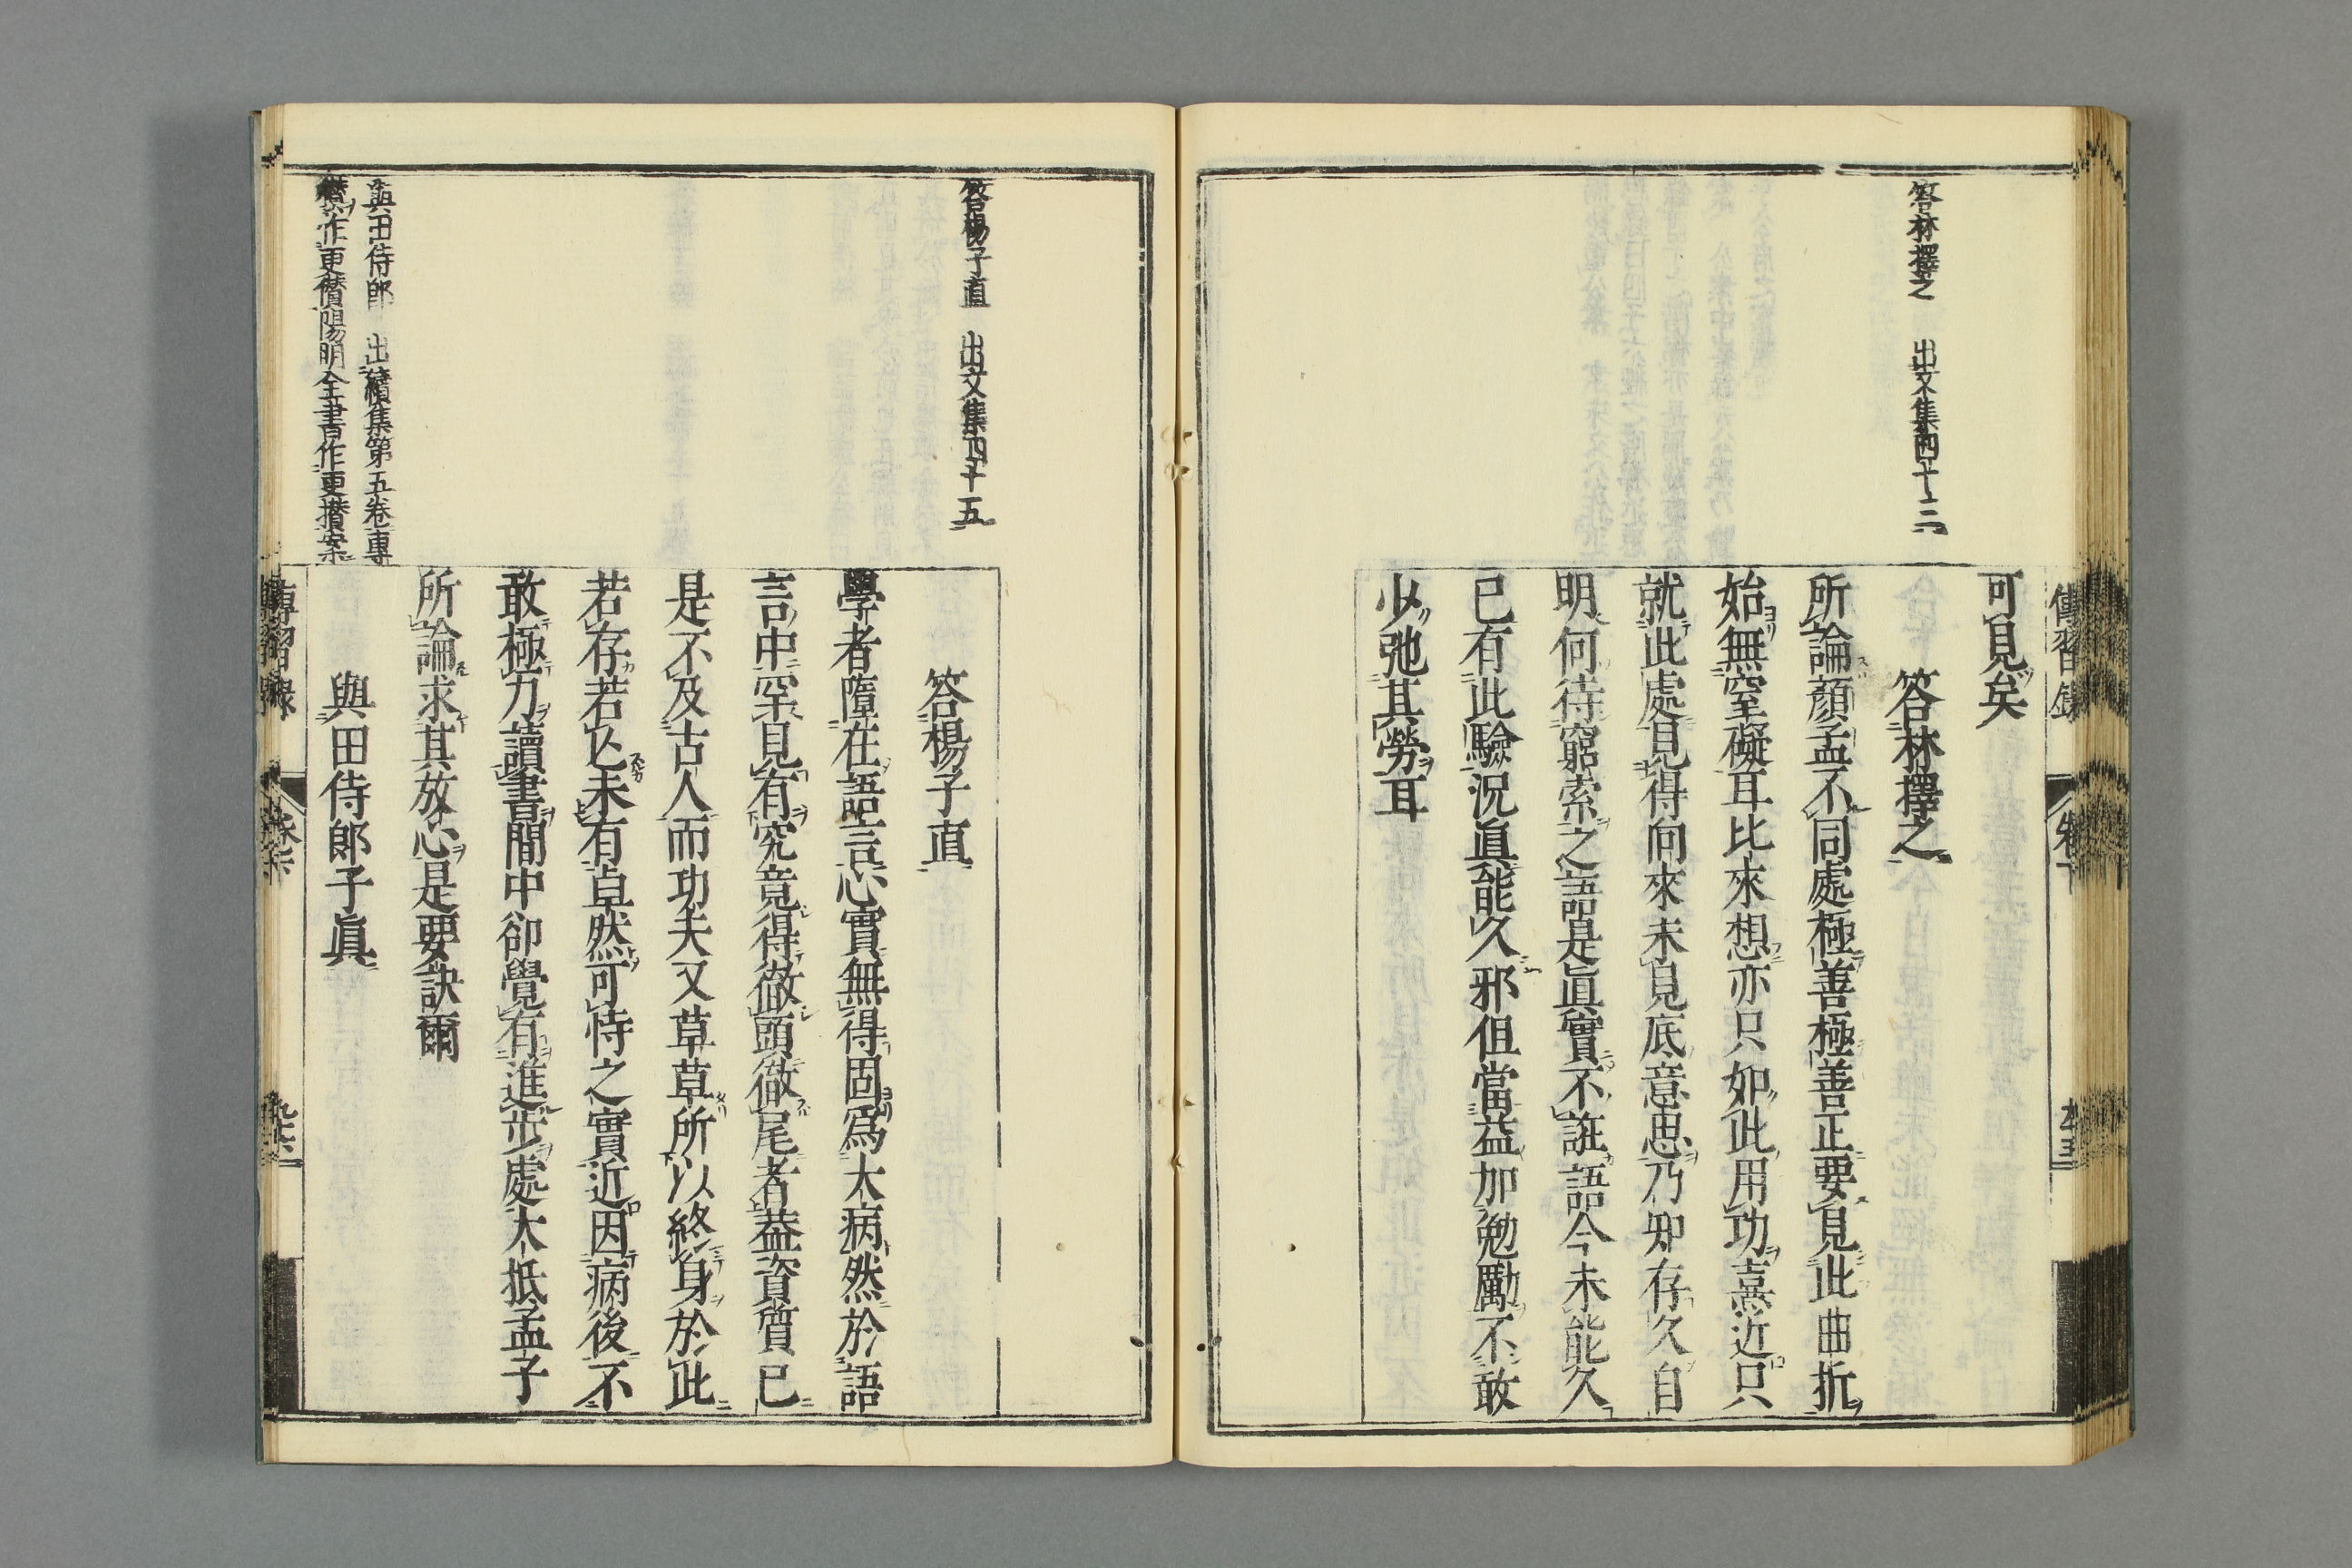 傳習錄
卷下
答林擇之　出文集四十三
可見矣
答林擇之
所論顏孟不同處極善極善正要見此曲折
始無窒礙耳比來想亦只如此用功熹近只
就此處見得向來未見底意思乃知存久自
明何待窮索之語是眞實不誑語今未能久
已有此驗況眞能久邪但當益加勉勵不敢
少弛其勞耳
答楊子直　出文集四十五
與田侍郎　出續集第五卷專
儹作更儹陽明全書作更攢案
答楊子直
學者墮在語言心實無得固爲大病然於語
言中罕見有究竟得徹頭徹尾者蓋資質已
是不及古人而功夫又草草所以終身於此
若存若亡未有卓然可恃之實近因病後不
敢極力讀書閒中卻覺有進步處大抵孟子
所論求其放心是要訣爾
與田侍郎子眞
傳習錄